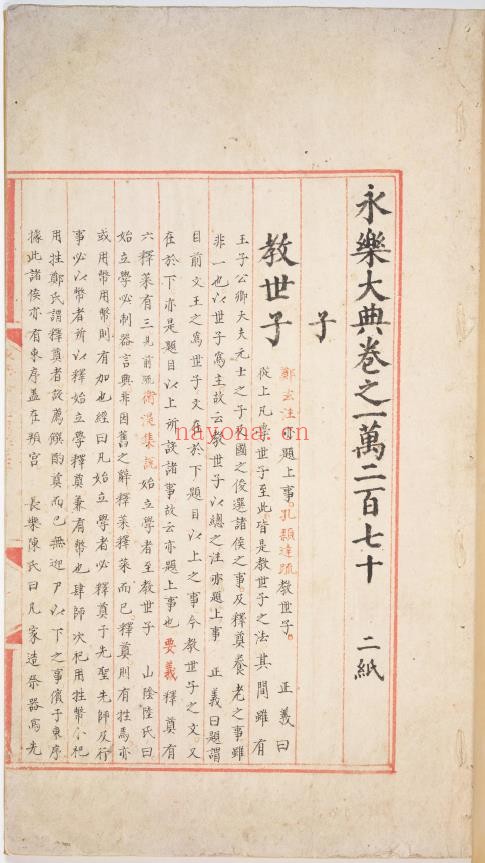 永樂大典卷之一萬二百七十 二紙
子
教世子
鄭玄注亦題上事。孔穎達疏教世子。 正義曰
從上凡學世子至此皆是教世子之法其間雖有
王子公卿大夫元士之子及國之俊選諸侯之事及釋奠養老之事雖
非一也以世子爲主故云教世子以總之注亦題上事 正義曰題謂
目前文王之爲世子文在於下題目以上之事今教世子之文又
在於下亦是題目以上所設諸事故云亦題上事也要義釋奠有
六釋菜有三見前疏衛湜集說始立學者至教世子 山陰陸氏曰
始立學必制器言興非因舊之辭釋菜釋菜而已釋奠則有牲焉亦
或用幣用幣則有加也經曰凡始立學者必釋奠于先聖先師及行
事必以幣者所以釋始立學釋奠兼有幣也肆師次祀用牲幣小祀
用牲鄭氏謂釋奠者設薦饌酌奠而已無迎尸以下之事儐于東序
據此諸侯亦有東序蓋在頖宮 長樂陳氏曰凡家造祭器爲先
nayona.cn